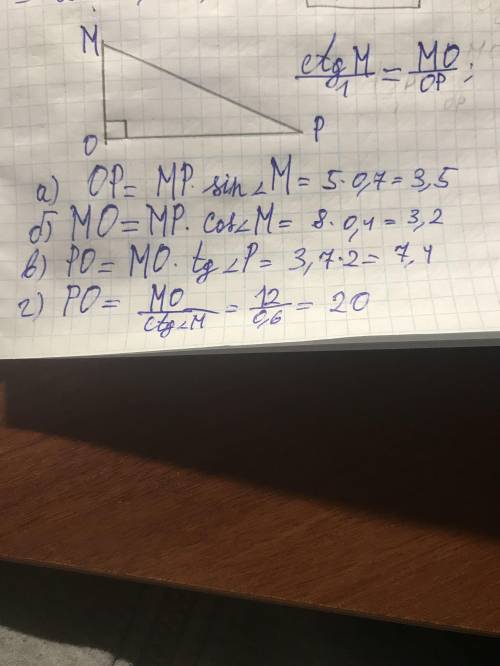 M
O
P
ctg M / 1 = MO / OP ;
а) OP = MP · sin∠M = 5 · 0,7 = 3,5
б) MO = MP · cos∠M = 8 · 0,4 = 3,2
в) PO = MO · tg∠P = 3,7 · 2 = 7,4
г) PO = MO / ctg∠M = 12 / 0,6 = 20